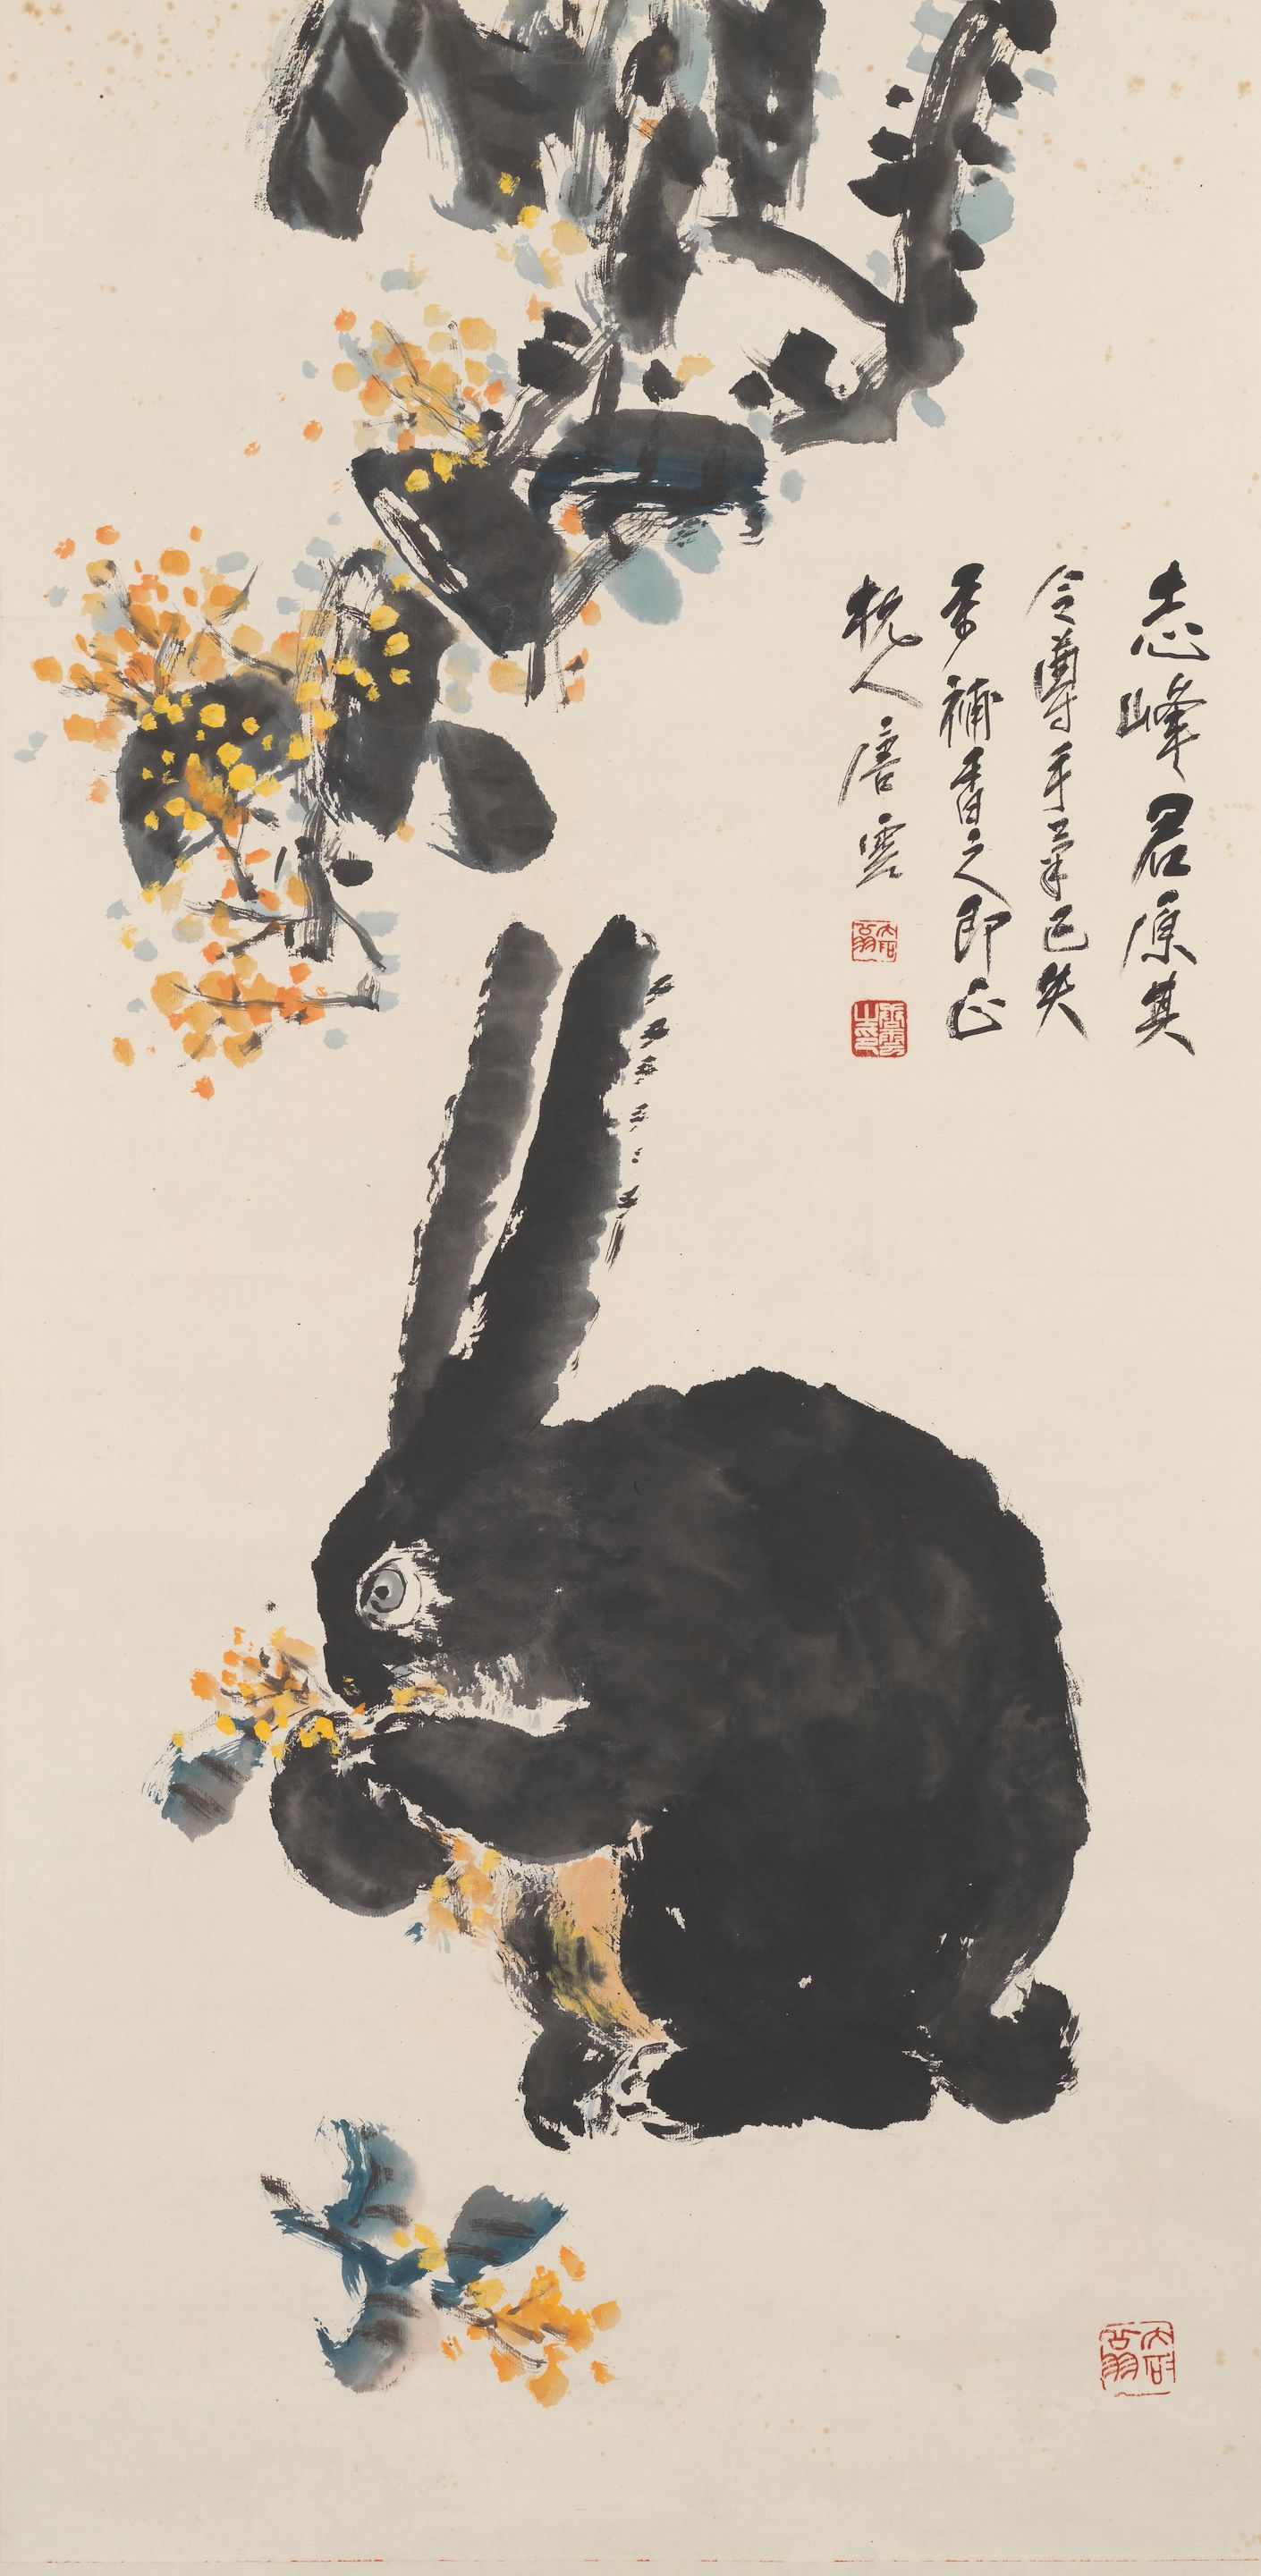 志峰君原其
令尊手筆已失
余補書之即正
杭人唐雲